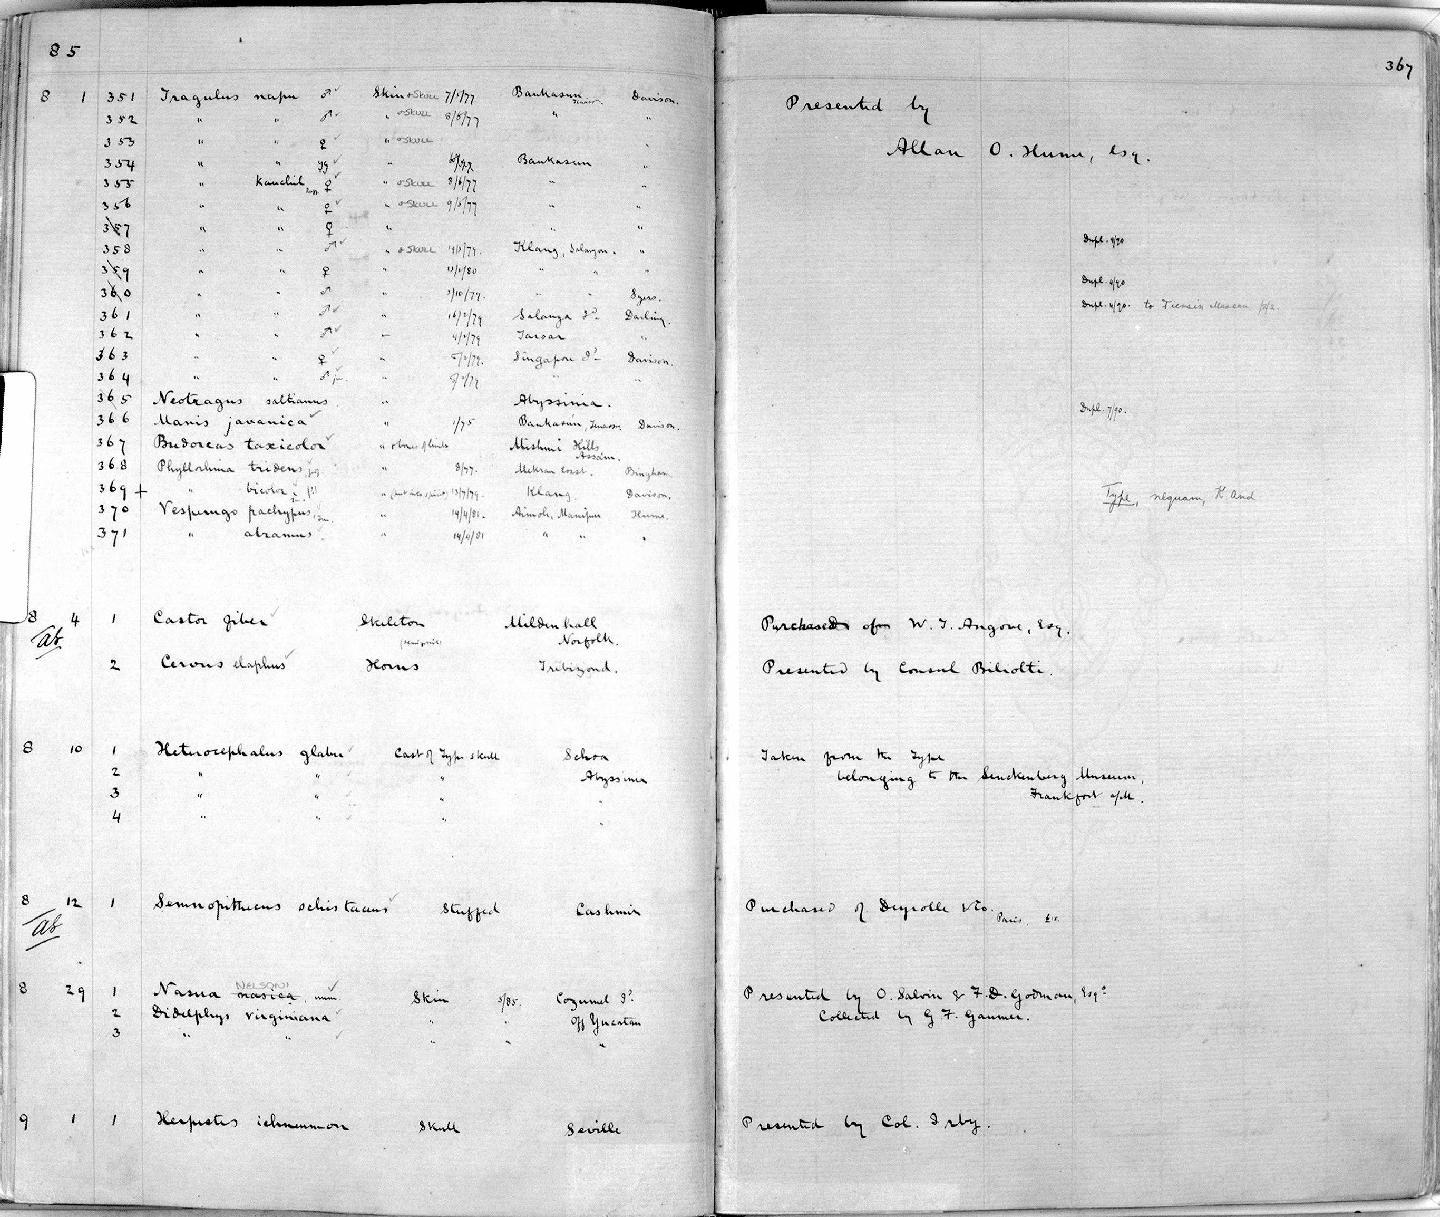 85
367
8 1 351 Tragulus napu ♂ Skin & Skull 7/ /77 Bankasun Davison.
352 " " ♂ " & Skull 8/5/77 " "
353 " " ♀ " & Skull "
354 " " " Bankasun "
355 " Kanchil ♀ " & Skull 8/6/77 " "
356 " " ♀ " & Skull 9/5/77 " "
357 " " ♀ " "
358 " " ♂ " & Skull Klang, Salangor. "
359 " " ♀ " /80 " " "
360 " " ♂ " /10/79. " " Syers.
361 " " ♂ " 16/ /79 Salanga Id. Darling.
362 " " ♂ " 4/ /79 "
363 " " ♀ " /79. Singapore Id. Davison.
364 " " ♂ " "
365 Neotragus saltianus " Abyssinia.
366 Manis javanica " /75 Bankasun, Davison.
367 Budorcas taxicolor " Mishmi Hills
Assam.
368 Phyllorhina tridens " 8/77. Mekran Coast. Bingham
369 + " bicolor " 13/7/79. Klang. Davison.
370 Vesperugo pachypus " 14/4/81. Aimole, Manipur Hume.
371 " abramus " 14/4/81 " " "
Presented by
Allan O. Hume, Esq.
Dupl. 4/90
Dupl. 4/90
Dupl. 4/90. to Museum
Dupl. 7/90.
Type, nequam, K And
8 4 1 Castor fiber Skeleton Mildenhall
Norfolk.
Purchased of W. J. Angove, Esq.
2 Cervus elaphus Horns Trebizond.
Presented by Consul Biliotti.
8 10 1 Heterocephalus glaber Cast of Type skull Schoa
2 " " " Abyssinia
3 " " " "
4 " " " "
Taken from the Type
belonging to the Senckenberg Museum,
Frankfort a/M.
8 12 1 Semnopithecus schistaceus Stuffed Cashmir
Purchased of Deyrolle & Co.
Paris.
8 29 1 Nasua nasica NELSONI Skin 5/85. Cozumel Id.
2 Didelphys virginiana " " off Yucatan
3 " " " " "
Presented by O. Salvin & F. D. Godman, Esqs
Collected by G. F. Gaumer.
9 1 1 Herpestes ichneumon Skull Seville
Presented by Col. Irby.